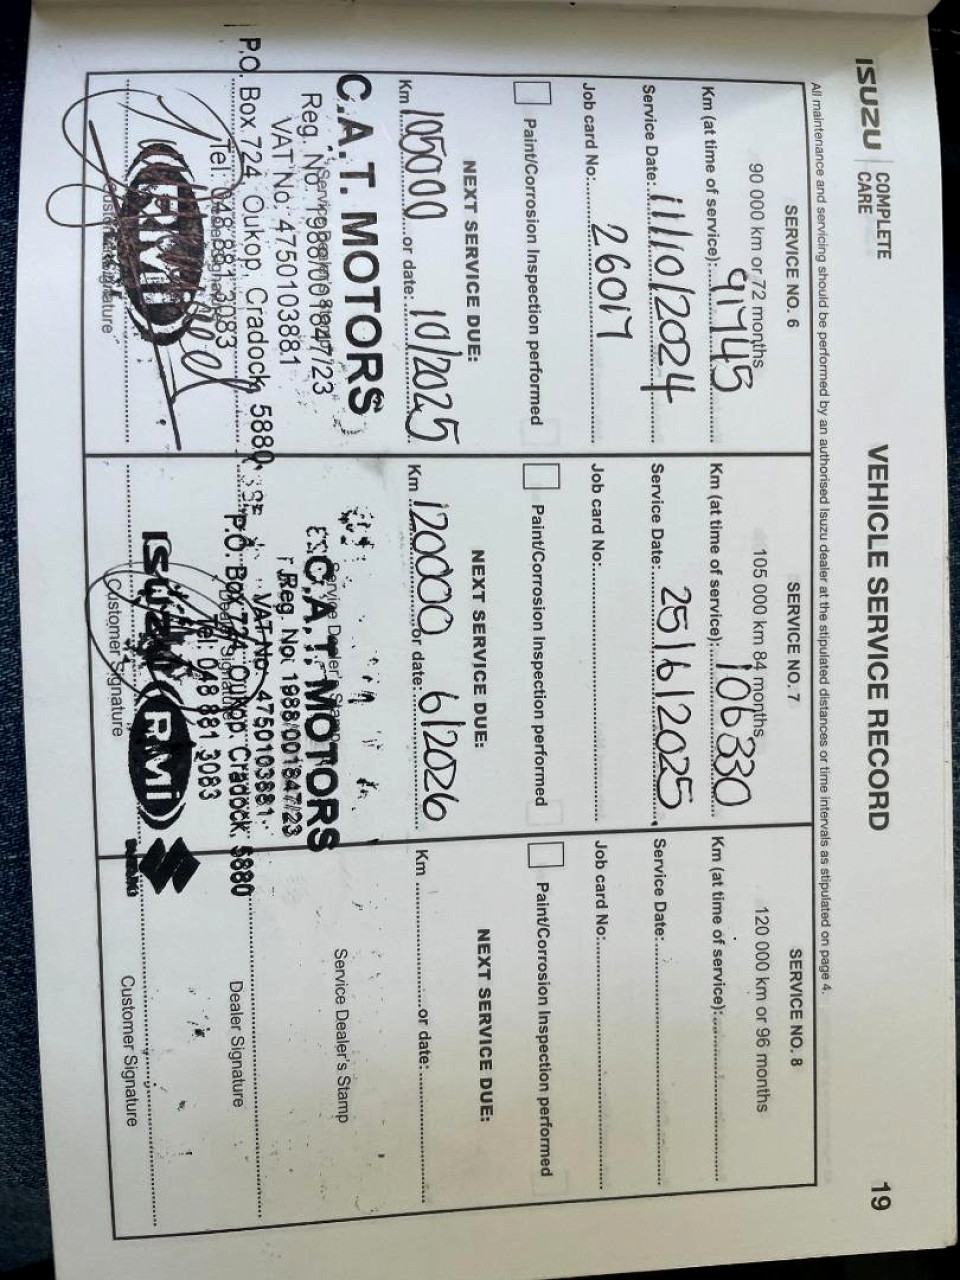 ISUZU | COMPLETE CARE
VEHICLE SERVICE RECORD
19
All maintenance and servicing should be performed by an authorised Isuzu dealer at the stipulated distances or time intervals as stipulated on page 4.
SERVICE NO. 6
90 000 km or 72 months
Km (at time of service): 91745
Service Date: 11/10/2024
Job card No: 26017
Paint/Corrosion Inspection performed
NEXT SERVICE DUE:
Km 105000 or date: 10/2025
C.A.T. MOTORS
Reg. No. 1988/001847/23
VAT No: 4750103881
P.O. Box 724, Oukop, Cradock, 5880
Tel: 048 881 3083
RMI
Customer Signature
SERVICE NO. 7
105 000 km 84 months
Km (at time of service): 106330
Service Date: 25/6/2025
Job card No:
Paint/Corrosion Inspection performed
NEXT SERVICE DUE:
Km 120000 or date: 6/2026
Service Dealer's Stamp
C.A.T. MOTORS
Reg. No. 1988/001847/23
VAT No. 4750103881
P.O. Box 724, Oukop, Cradock, 5880
Tel: 048 881 3083
ISUZU RMI
Customer Signature
SERVICE NO. 8
120 000 km or 96 months
Km (at time of service):
Service Date:
Job card No:
Paint/Corrosion Inspection performed
NEXT SERVICE DUE:
Km or date:
Service Dealer's Stamp
Dealer Signature
Customer Signature